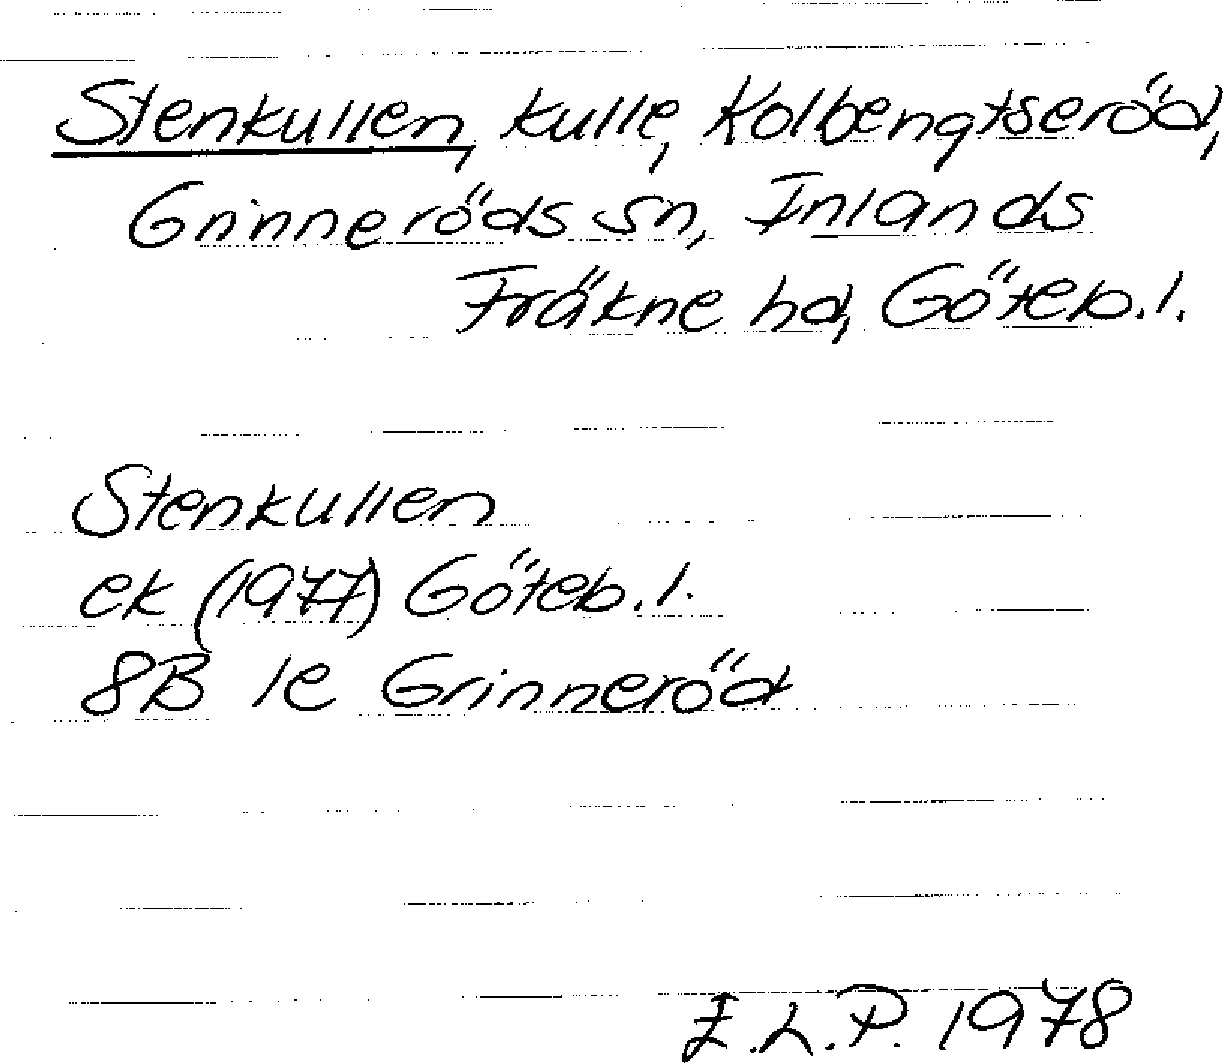 Stenkullen, kulle, Kolbengtseröd,
Grinneröds sn, Inlands
Fräkne hd, Göteb.l.
Stenkullen
ek (1977) Göteb.l.
8B 1e Grinneröd
E.L.P. 1978